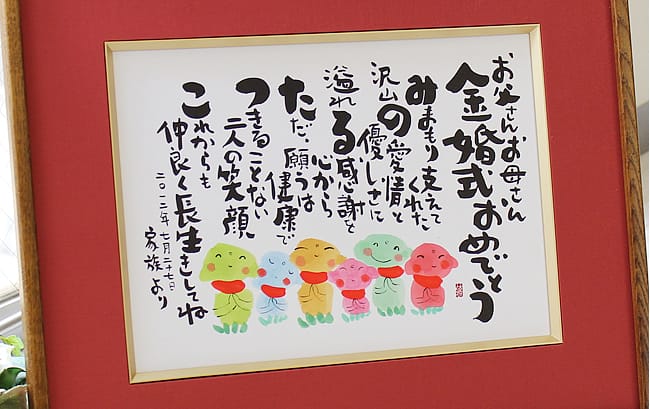 お父さんお母さん
金婚式おめでとう
みまもり支えてくれた
沢山の愛情と
優しさに
溢れる感謝と
心から
ただ、願うは
健康で
つきることない
二人の笑顔
これからも
仲良く長生きしてね
二〇一二年七月二十七日
家族より